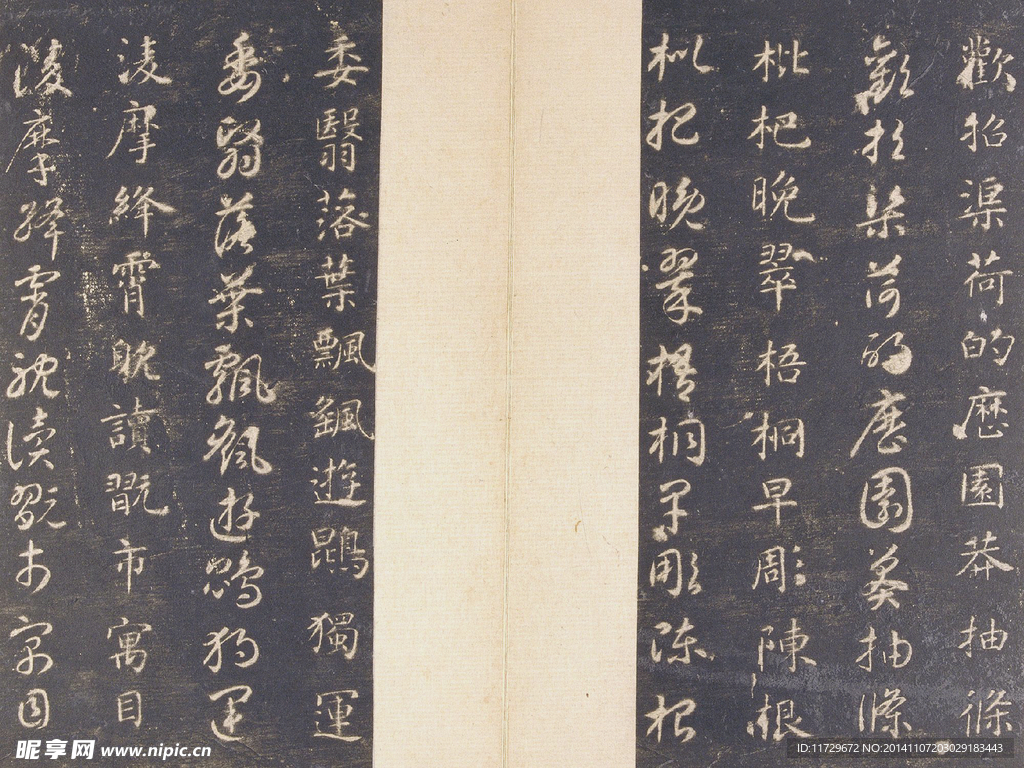 歡招渠荷的歷園莽抽條
歡招渠荷的歷園莽抽條
枇杷晚翠梧桐早彫陳根
枇杷晚翠梧桐早彫陳根
委翳落葉飄颻遊鵾獨運
委翳落葉飄颻遊鵾獨運
淩摩絳霄耽讀翫市寓目
淩摩絳霄耽讀翫市寓目
昵享网 www.nipic.cn
ID:11729672 NO:20141107203029183443